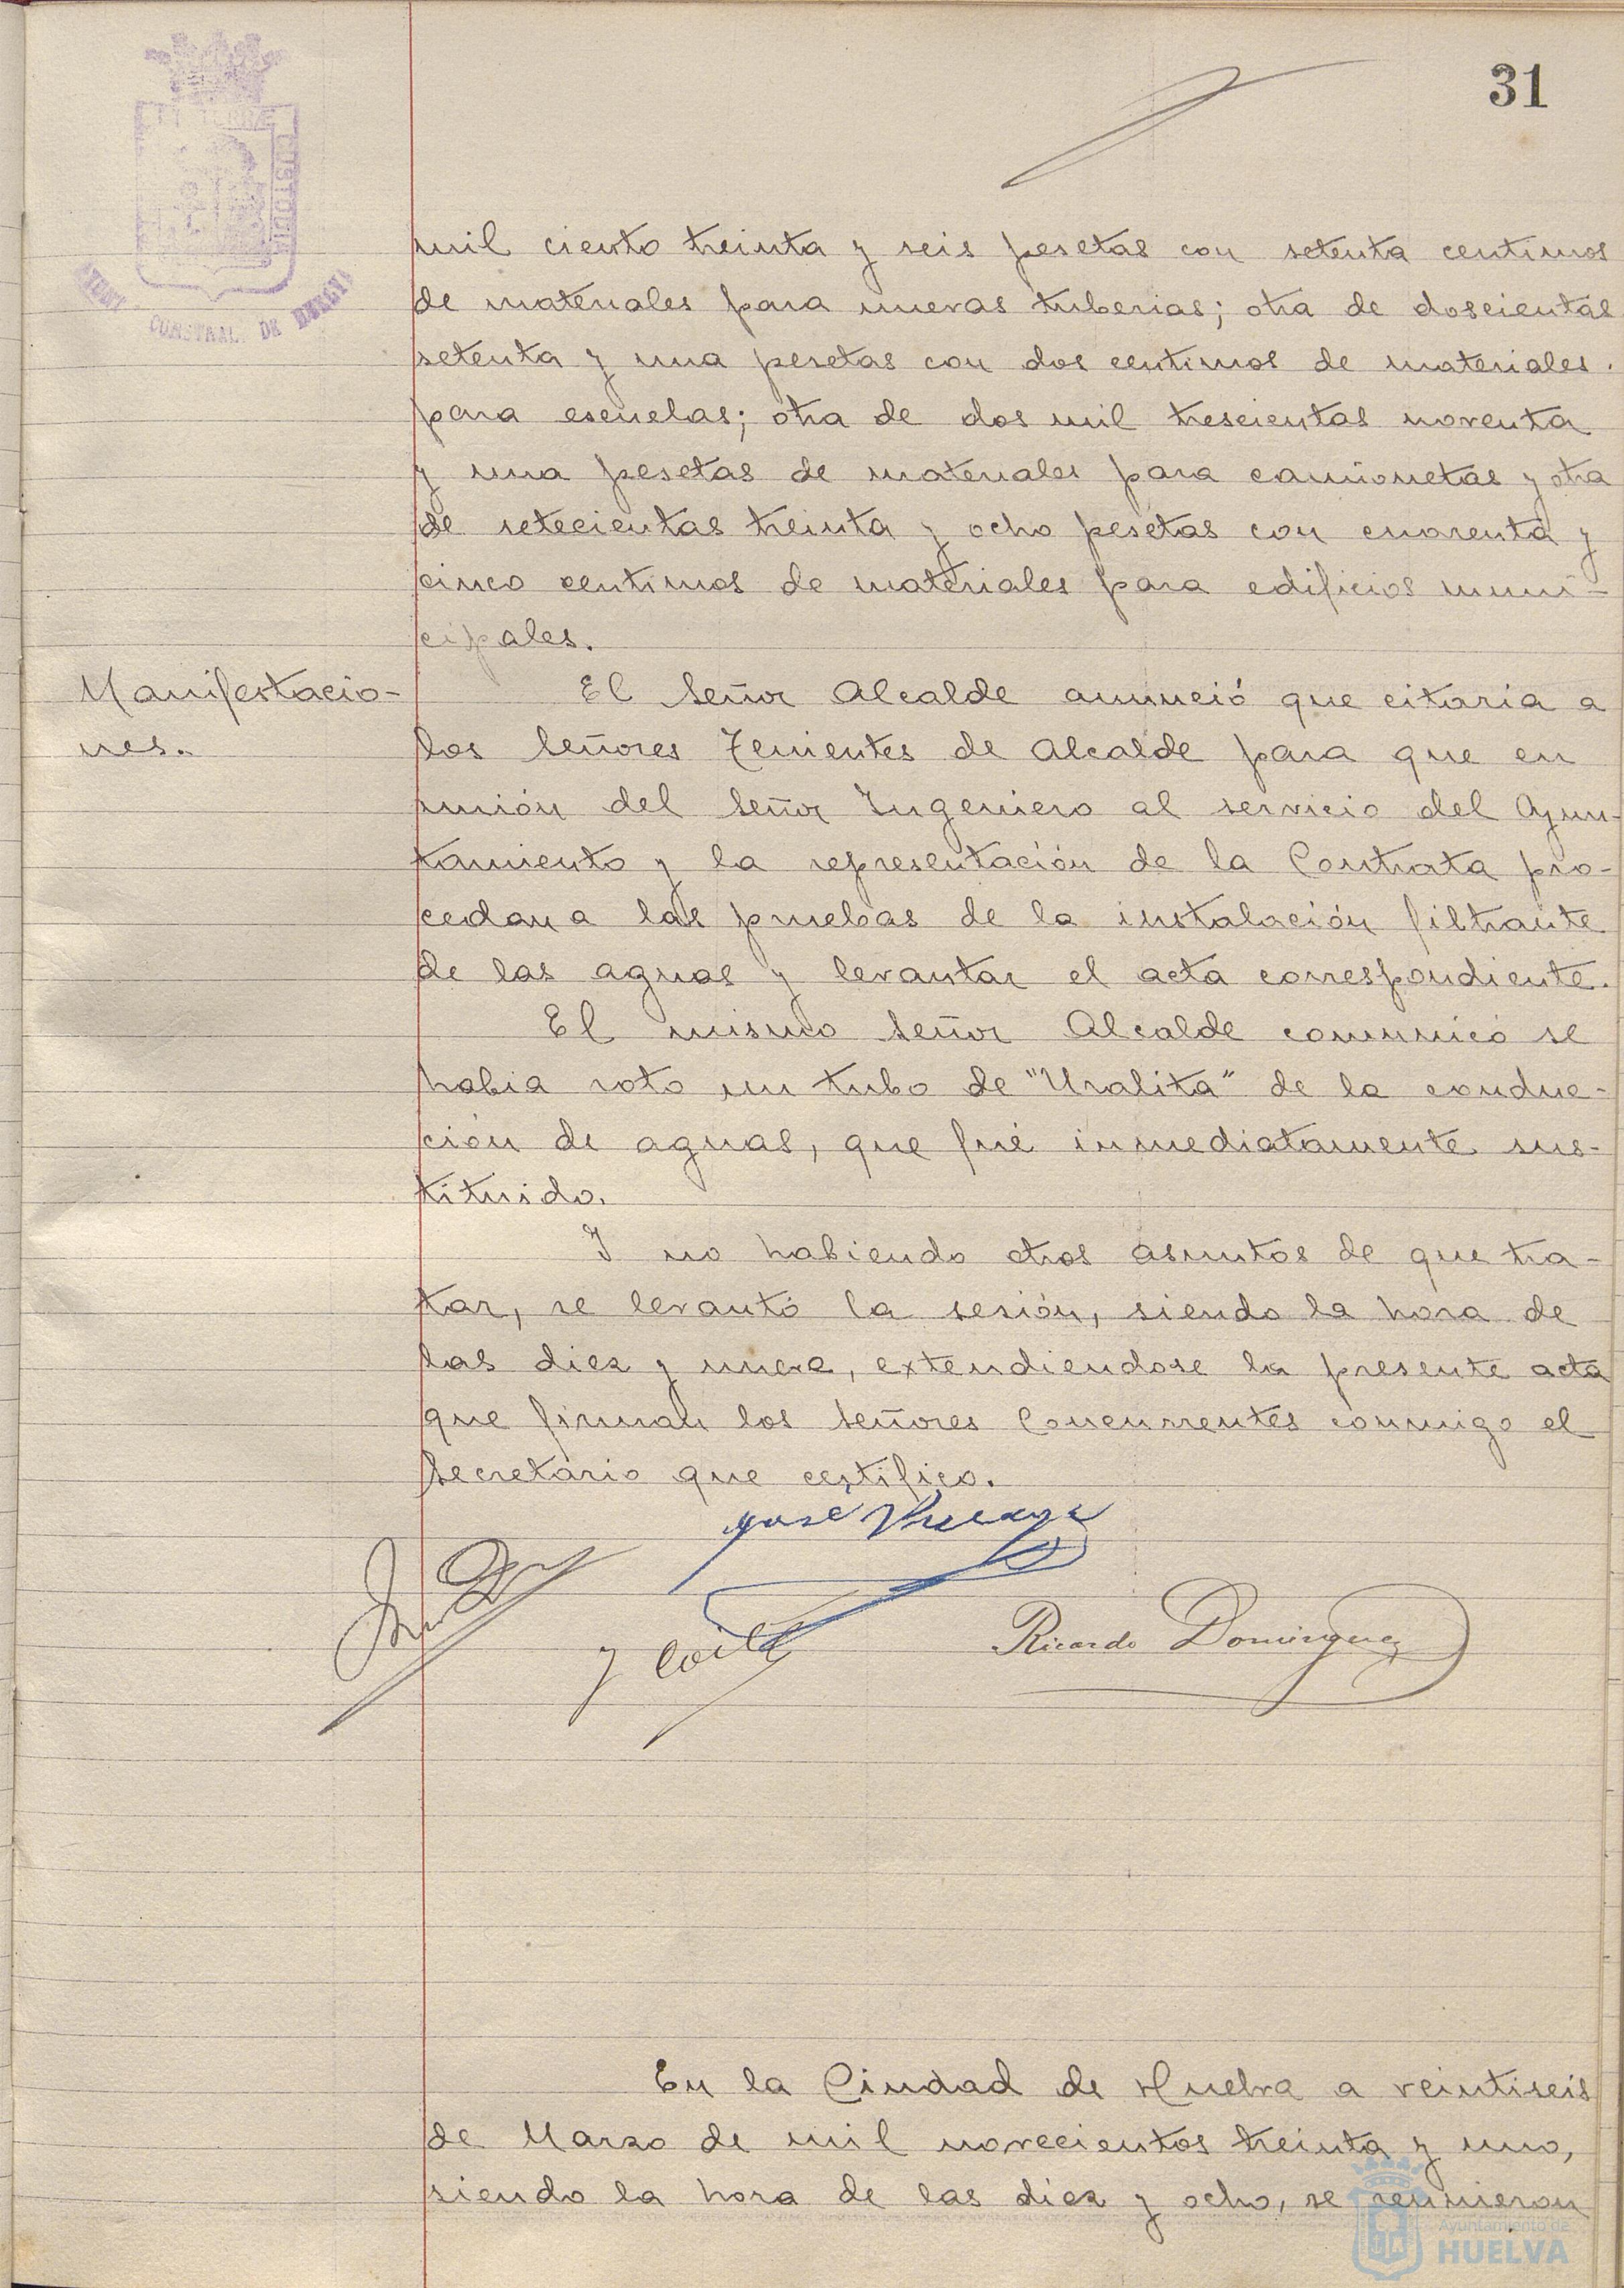 31
mil ciento treinta y seis pesetas con setenta centimos
de materiales para nuevas tuberias; otra de doscientas
setenta y una pesetas con dos centimos de materiales
para escuelas; otra de dos mil trescientas noventa
y una pesetas de materiales para camionetas y otra
de setecientas treinta y ocho pesetas con cuarenta y
cinco centimos de materiales para edificios muni-
cipales.
Manifestacio-
nes.
El Señor Alcalde anunció que citaria a
los Señores Tenientes de Alcalde para que en
unión del Señor Ingeniero al servicio del Ayun-
tamiento y la representación de la Contrata pro-
cedan a las pruebas de la instalación filtrante
de las aguas y levantar el acta correspondiente.
El mismo Señor Alcalde comunicó se
habia roto un tubo de "Uralita" de la conduc-
ción de aguas, que fué inmediatamente sus-
tituido.
Y no habiendo otros asuntos de que tra-
tar, se levantó la sesión, siendo la hora de
las diez y nueve, extendiendose la presente acta
que firman los Señores Concurrentes conmigo el
Secretario que certifico.
José
Ricardo Dominguez
En la Ciudad de Huelva a veintiseis
de Marzo de mil novecientos treinta y uno,
siendo la hora de las diez y ocho, se reunieron
Ayuntamiento de
HUELVA